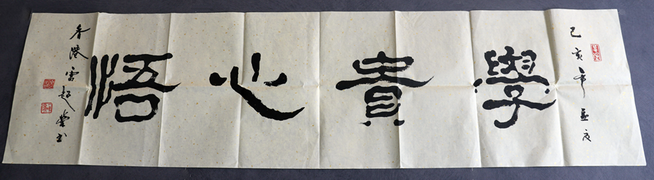 己亥年孟夏
學貴心悟
香港雲超書